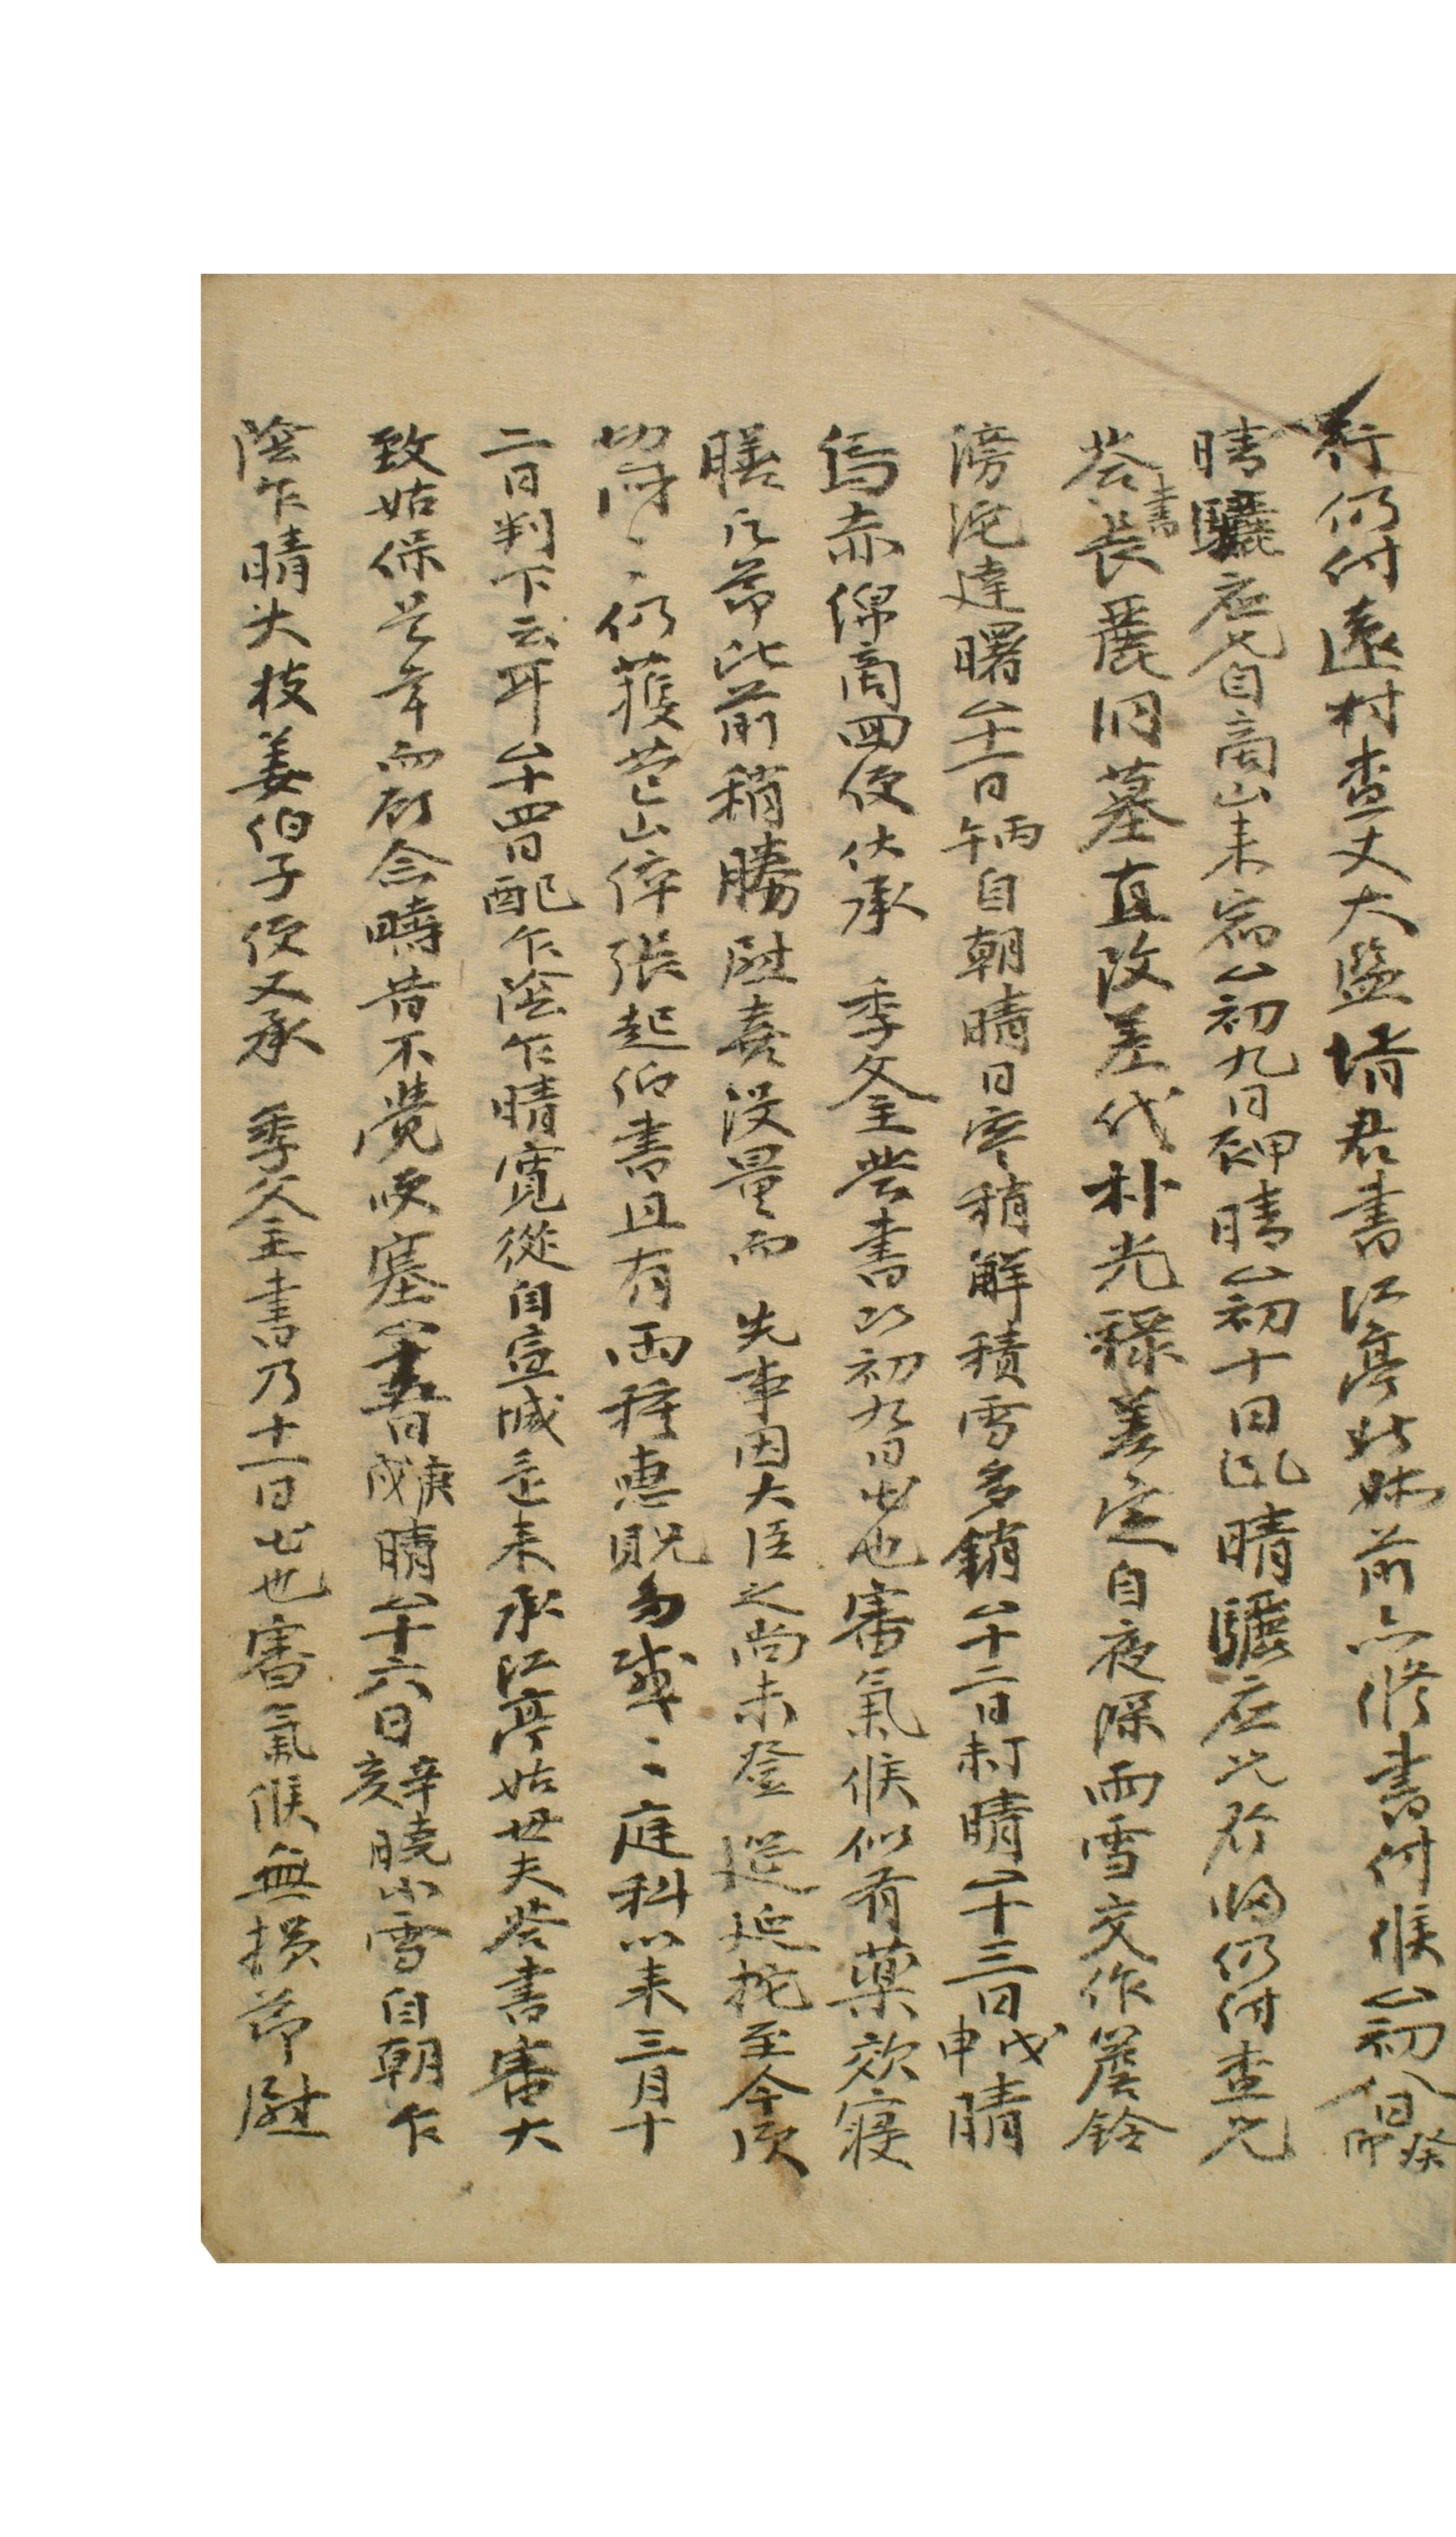 行仍付遠村査丈大監壻君書江亭姊妹前亦修書付候△初八日癸卯
晴驪庇兄自商山来宿△初九日甲辰晴△初十日乙巳晴驪庇兄發歸仍付査兄
答書長麗洞墓直改差代朴光祿差定自夜深雨雪交作簷鈴
滂沱達曙△十一日丙午自朝晴日寒稍解積雪多銷△十二日丁未晴△十三日戊申晴
焉赤綿商四便伏承季父主答書以初九日出也審氣候似有藥效寢
膳凡節比前稍勝慰喜沒量而先事因大臣之尚未登筵延拖至今須
切悶〻仍獲芒山倅張起伯書且有兩種惠貺多感〻庭科以来三月十
二日判下云耳△十四日己酉乍陰乍晴寬從自宣城還来承江亭姑母夫答書審大
致姑保昔年而顧念疇昔不覺哽塞△十五日庚戌晴△十六日辛亥曉小雪自朝乍
陰乍晴大枝姜伯子便又承季父主書乃十一日出也審氣候無損節慰